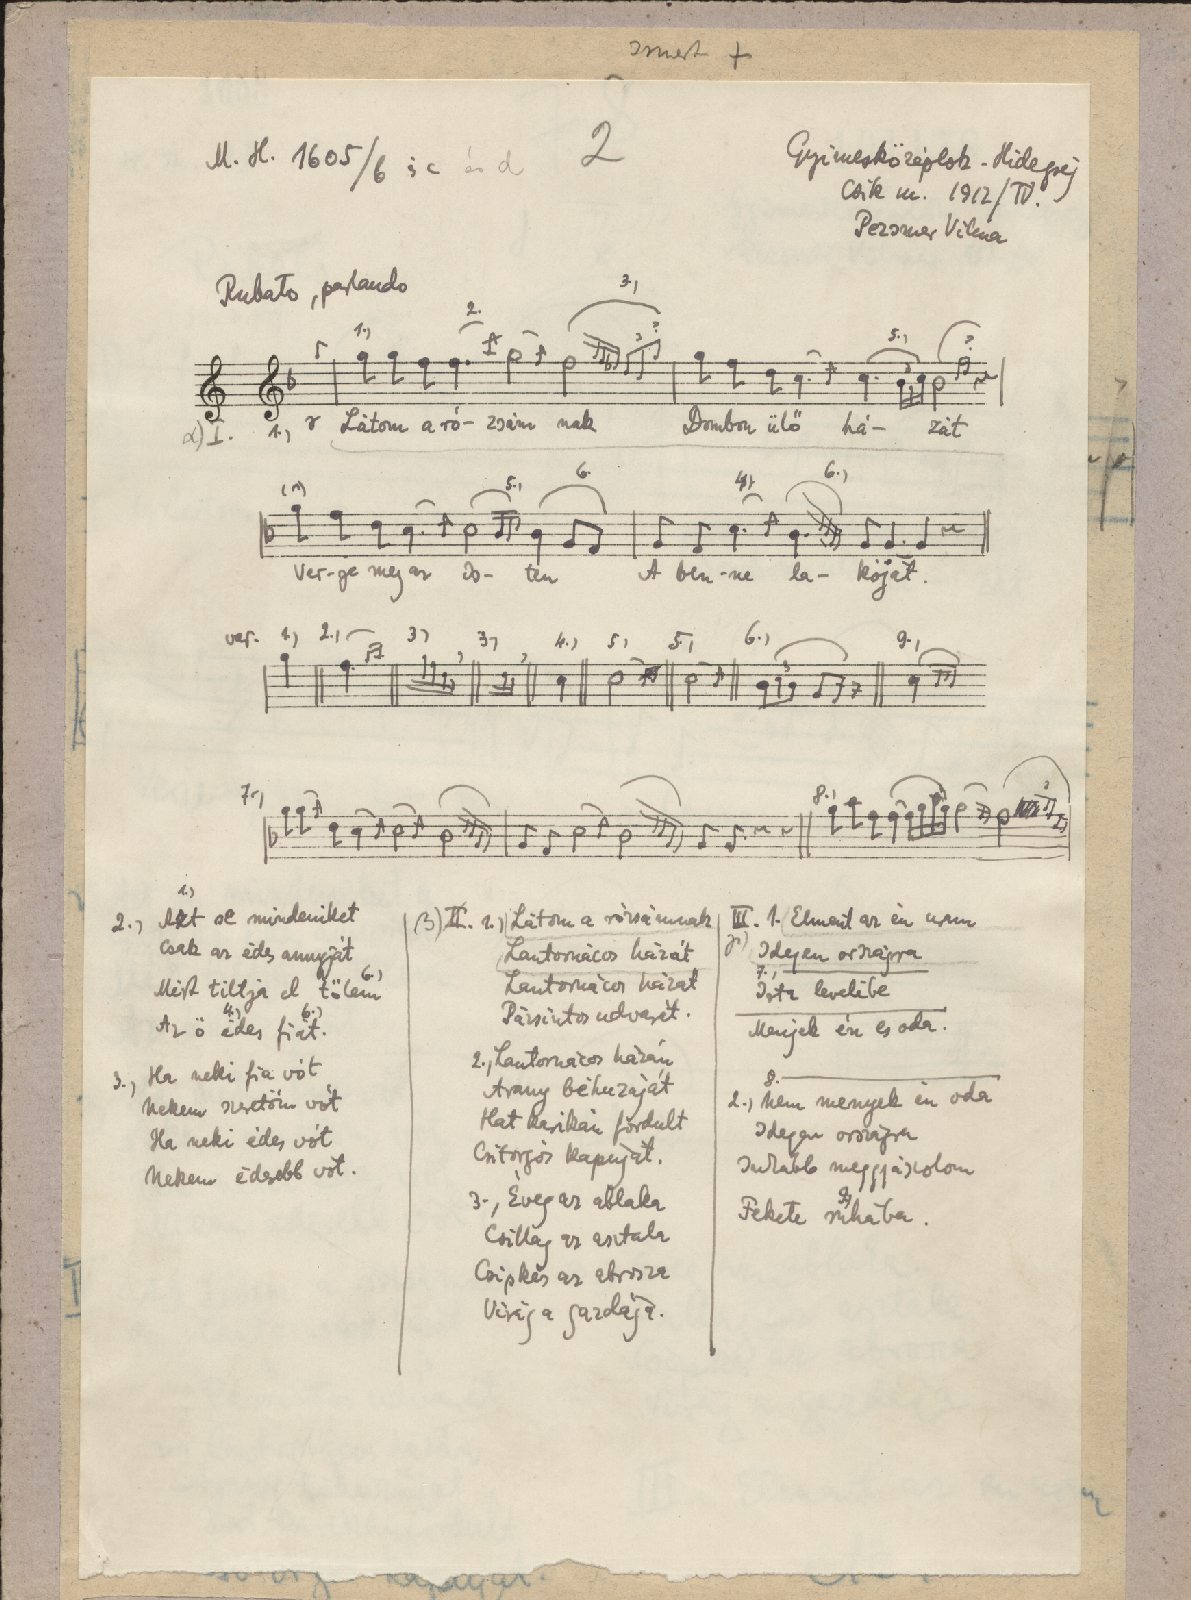 ismert +
M. H. 1605/b és c és d
2
Gyimesközéplok - Hidegség
Csik m. 1912/IV.
Pezsmer Vilma
Rubato, parlando
1.) 2. 3.) 5.)
α) I. 1.) Látom a ró- zsám nak Dombon ülő há- zát
5.) 6. 4.) 6.)
Ver-je meg az Is- ten A ben-ne la- kóját.
var. 1.) 2.) 3.) 3.) 4.) 5.) 5.) 6.) 9.)
7.) 8.)
1.)
2.) Azt se mindeniket
Csak az édes annyját
6.)
Mért tiltja el tőlem
4.) 6.)
Az ő édes fiát.
3.) Ha neki fia vót
Nekem szeretőm vót
Ha neki édes vót
Nekem édesebb vót.
β) II. 1.) Látom a rózsámnak
Lantornácos házát
Lantornácos házát
Pársintos udvarát.
2.) Lantornácos házán
Arany béhuzáját
Hat karikán fordult
Csitorgós kapuját.
3.) Éveg az ablaka
Csillag az asztala
Csipkés az abrosza
Virág a gazdája.
III. 1. Elment az én uram
γ) Idegen országra
7.)
Irta levelibe
Menjek én es oda.
8.
2.) Nem menyek én oda
Idegen országra
Inkább meggyászolom
9.)
Fekete ruhába.